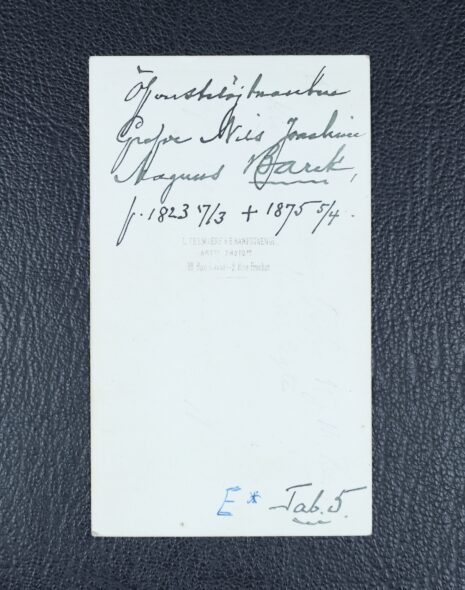 Öfverstelöjtnanten
Grefve Nils Joachim
Magnus Barck,
f. 1823 7/3 + 1875 5/4.
E* Tab. 5.